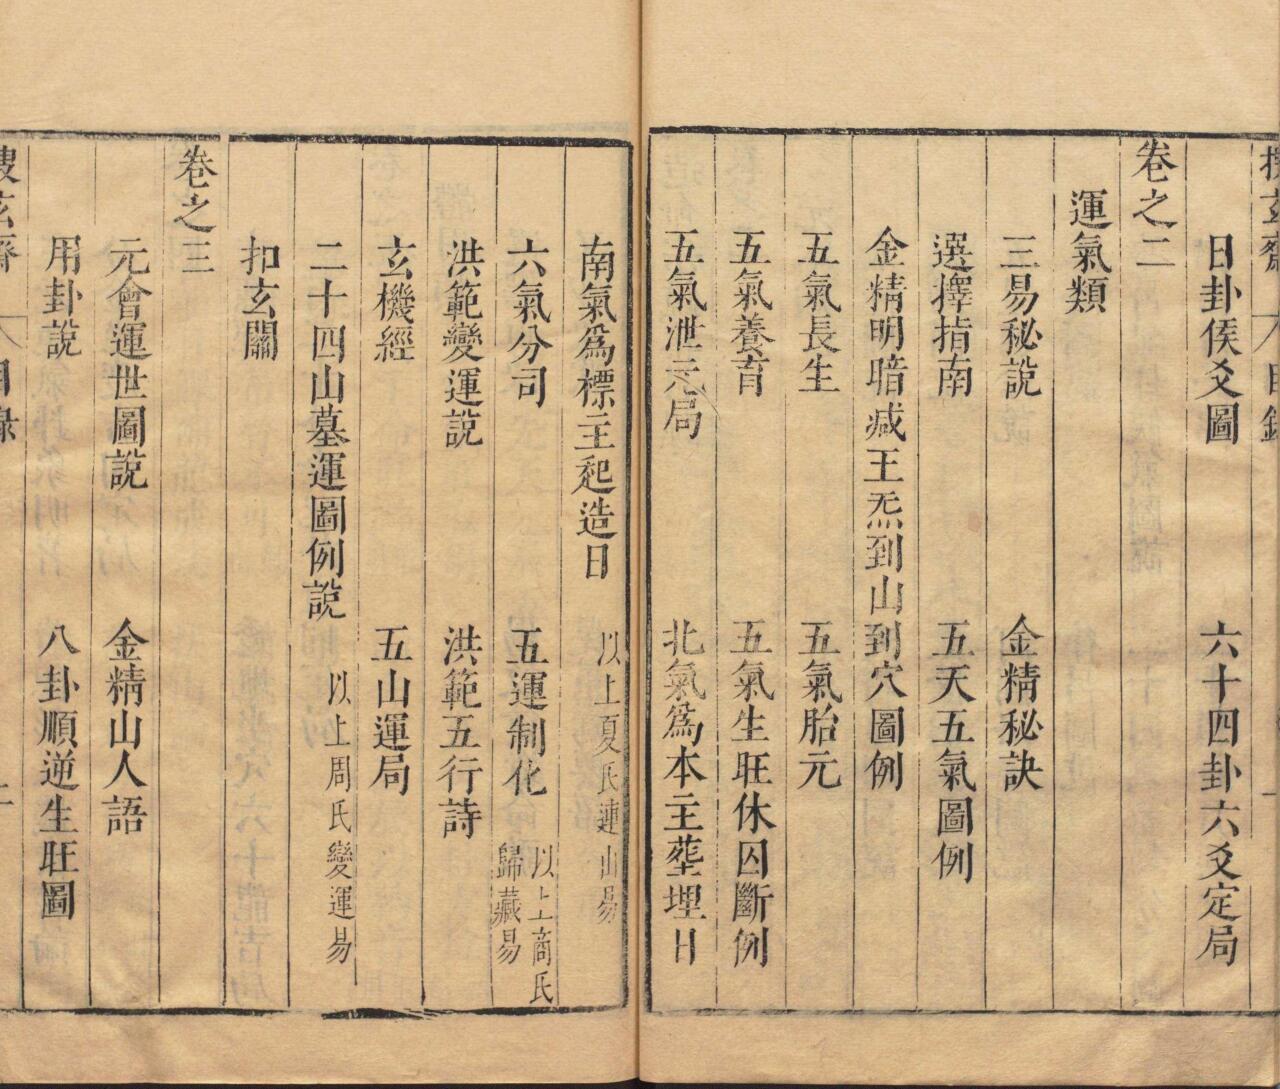 日卦侯爻圖　六十四卦六爻定局
卷之二
運氣類
三易秘說　金精秘訣
選擇指南　五天五氣圖例
金精明暗𢦟王炁到山到穴圖例
五氣長生　五氣胎元
五氣養育　五氣生旺休囚斷例
五氣泄元局　北氣為本主塟埋日
南氣為標主起造日　以上夏氏連山易
六氣分司　五運制化　以上商氏歸藏易
洪範變運說　洪範五行詩
玄機經　五山運局
二十四山墓運圖例說　以上周氏變運易
扣玄關
卷之三
元會運世圖說　金精山人語
用卦說　八卦順逆生旺圖
玄齋　目錄　二